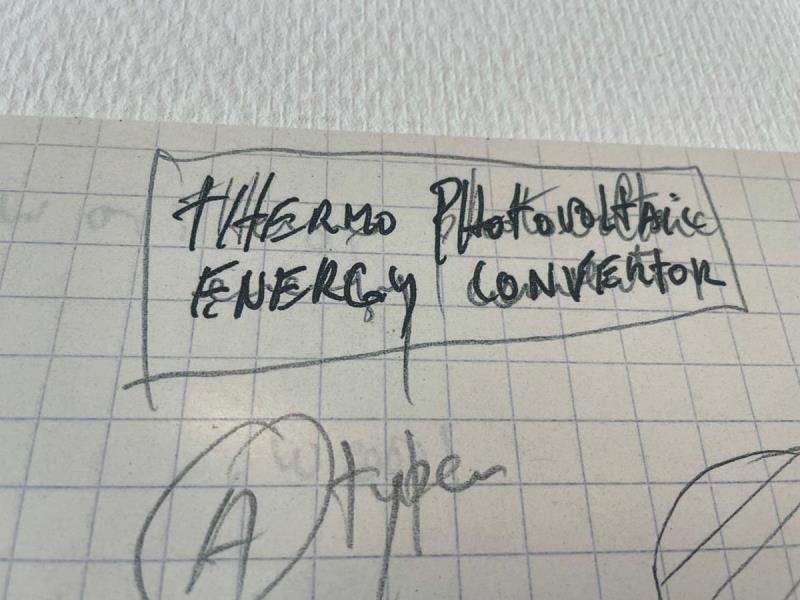 THERMO PHOTOVOLTAIC
ENERGY CONVERTOR
A type